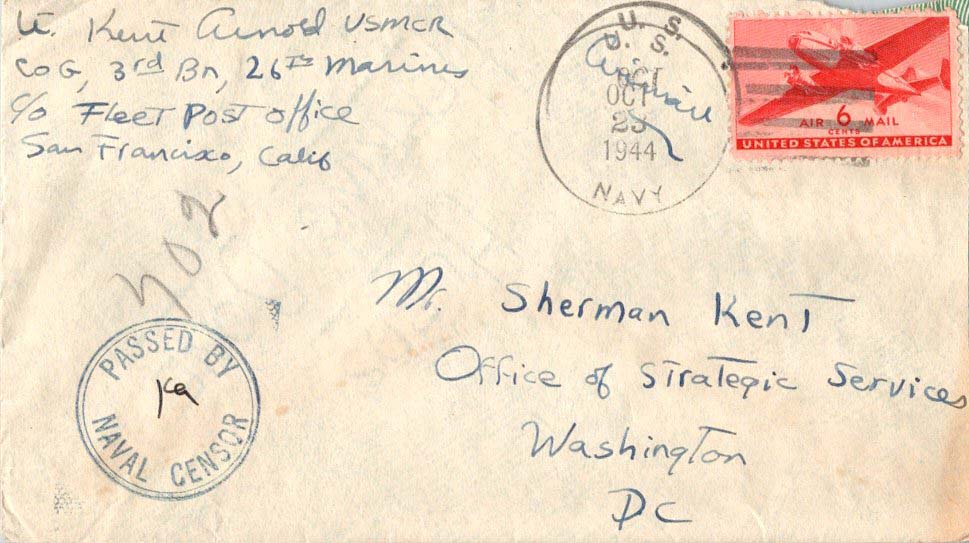 Lt. Kent Arnold USMCR
Co G, 3rd Bn, 26TH Marines
c/o Fleet Post office
San Francisco, Calif
U. S.
U. S.
Airmail
OCT
OCT
23
1944
NAVY
AIR 6 MAIL
CENTS
UNITED STATES OF AMERICA
702
Mr. Sherman Kent
Office of Strategic Services
Washington
DC
PASSED BY
Ka
NAVAL CENSOR